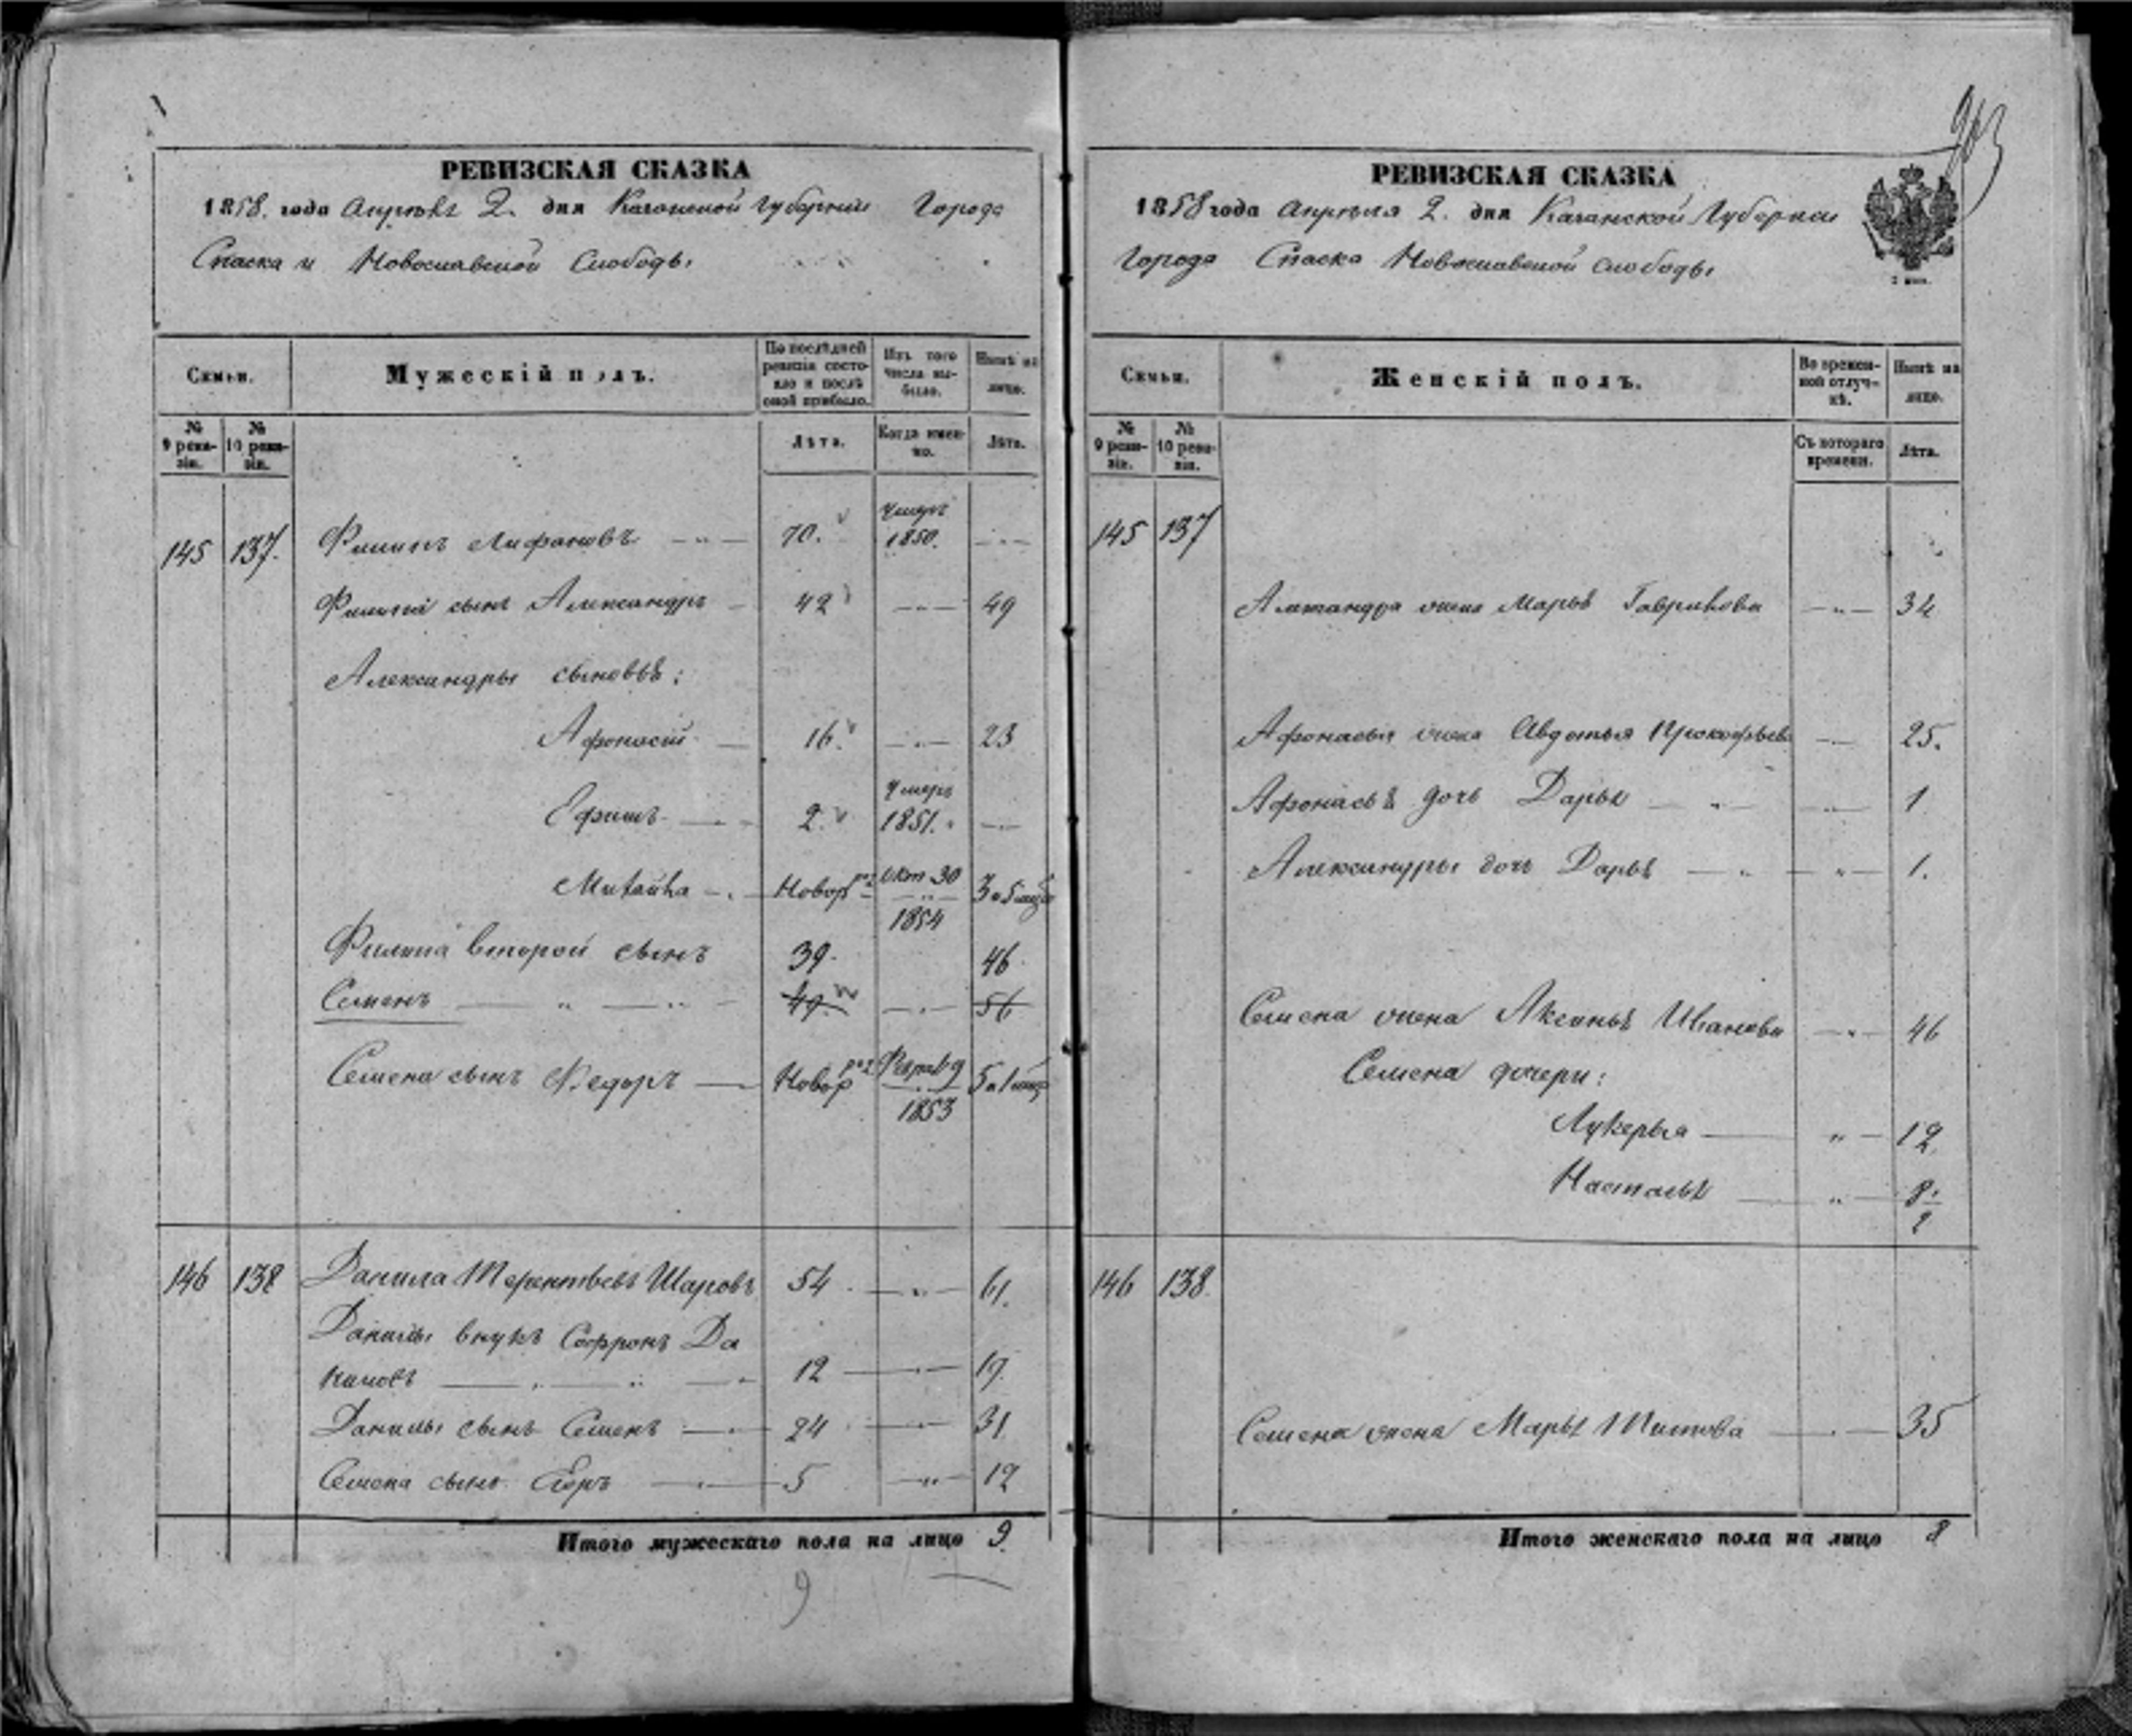 РЕВИЗСКАЯ СКАЗКА
1858. года Апреля 2. дня Казанской губернии Города
Спаска и Новоспавской Слободы
Семьи.
Мужескій полъ.
По послѣдней ревизіи состояло и послѣ оной прибыло.
Изъ того числа выбыло.
Нынѣ на лицо.
№ 9 ревизіи.
№ 10 ревизіи.
Лѣта.
Когда именно.
Лѣта.
145 137. Филипъ 70. Умеръ 1850.
Филипа сынъ Александръ 42 49
Александры сыновьѣ:
Афонасій 16. 23
Ефимъ 2. Умеръ 1851.
Новор Окт 30 1854
Филипа второй сынъ 39. 46
Семенъ 49. 56
Семена сынъ Федоръ Новор 1853
146 138 Данила Терентьевъ Шаровъ 54 61.
Данилы внукъ Софронъ Да
ниловъ 12 19.
Данилы сынъ Семенъ 24 31
Семена сынъ Егоръ 5 12
Итого мужескаго пола на лицо 9.
9
963
РЕВИЗСКАЯ СКАЗКА
1858 года Апреля 2. дня Казанской Губернии
Города Спаска Новоспавской слободы
Семьи.
Женскій полъ.
Во временной отлучкѣ.
Нынѣ на лицо.
№ 9 ревизіи.
№ 10 ревизіи.
Съ котораго времени.
Лѣта.
145 137
жена Марья Гаврилова 34
Афонасья жена Авдотья Прокофьева 25.
Афонасьѣ дочь Дарья 1
Александры дочь Дарьѣ 1.
Семена жена Аксиньѣ Иванова 46
Семена дочери:
Лукерья 12
Настасьѣ 8.
146 138.
Семена жена Марьѣ Титова 35
Итого женскаго пола на лицо 8